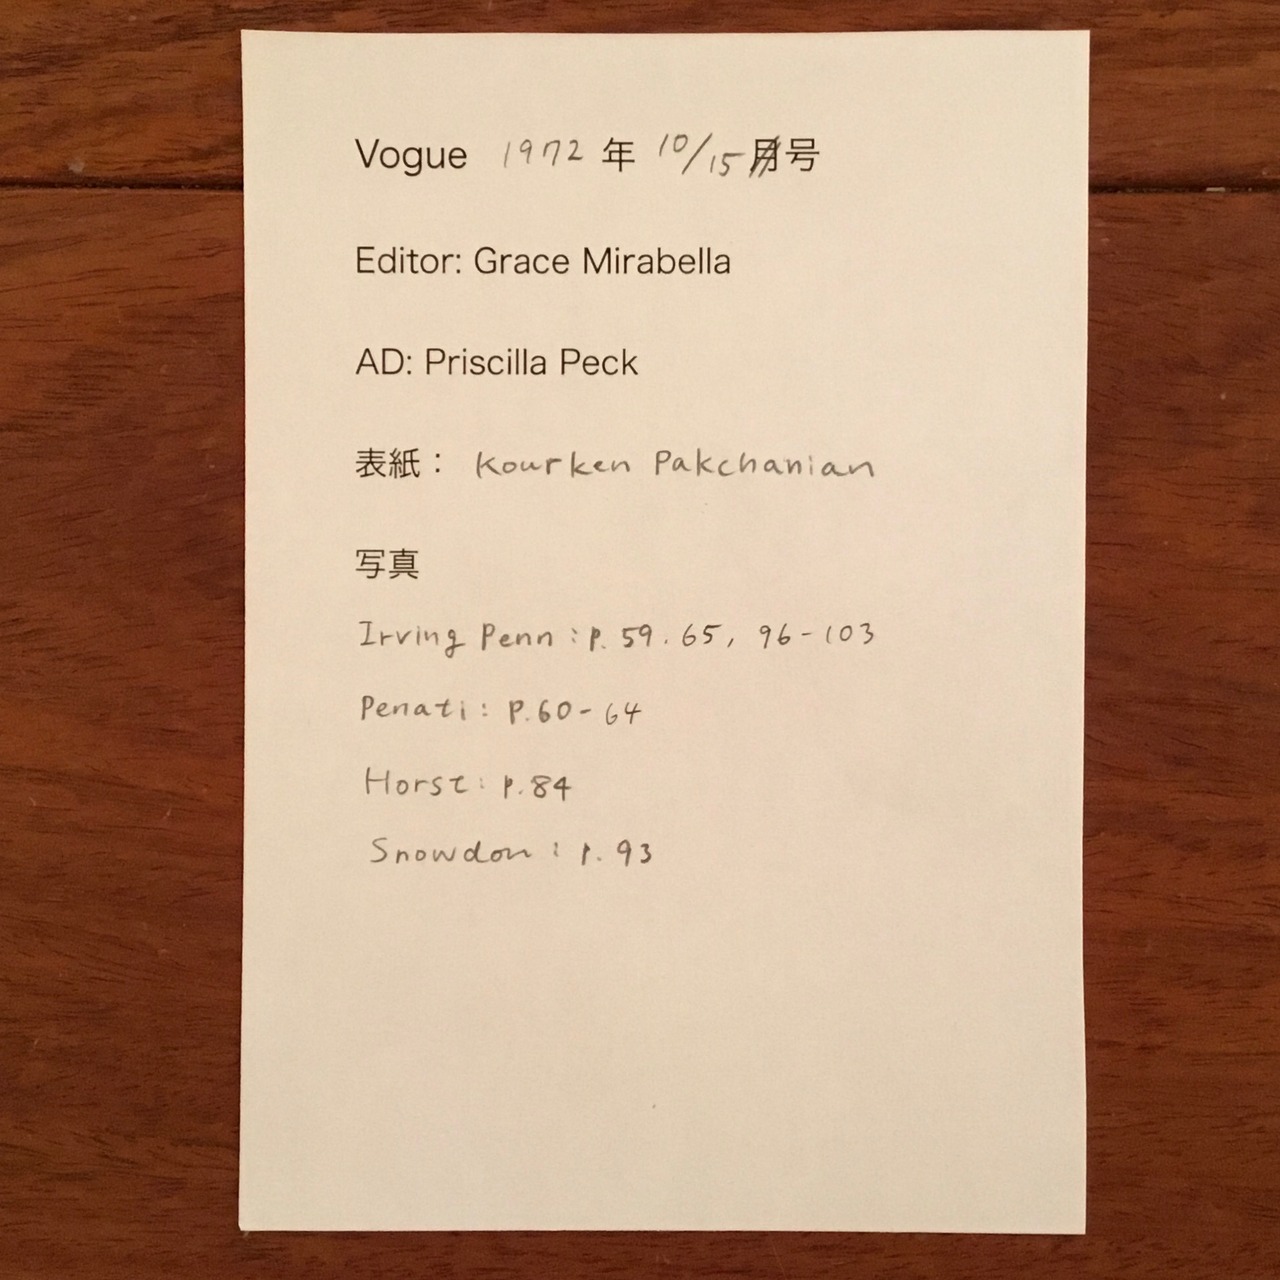 Vogue 1972 年 10/15 月号
Editor: Grace Mirabella
AD: Priscilla Peck
表紙： Kourken Pakchanian
写真
Irving Penn : p. 59. 65, 96-103
Penati : P. 60-64
Horst : p. 84
Snowdon : p. 93